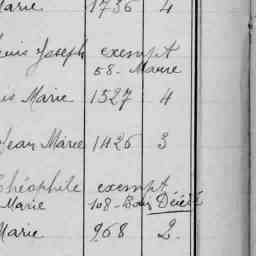 Marie 1736 4
Louis Joseph exempt
58 - Maire
is Marie 1527 4
Jean Marie 1426 3
Théophile exempt
Marie 108 - Décédé
Marie 968 2